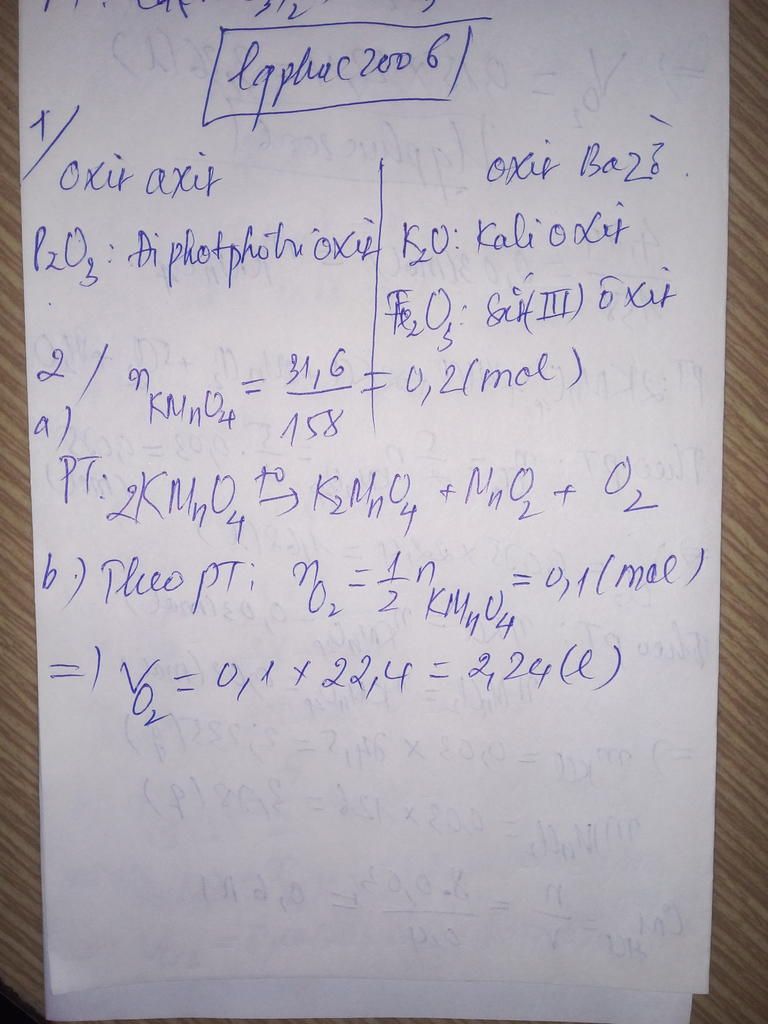 lqphuc2006
1/
oxit axit
oxit Bazơ
P2O3: điphotpho trioxit
K2O: Kali oxit
Fe2O3: Sắt(III) oxit
2/ nKMnO4 = 31,6/158 = 0,2(mol)
a)
PT: 2KMnO4 to→ K2MnO4 + MnO2 + O2
b) Theo PT: nO2 = 1/2 nKMnO4 = 0,1(mol)
=) VO2 = 0,1 x 22,4 = 2,24(l)